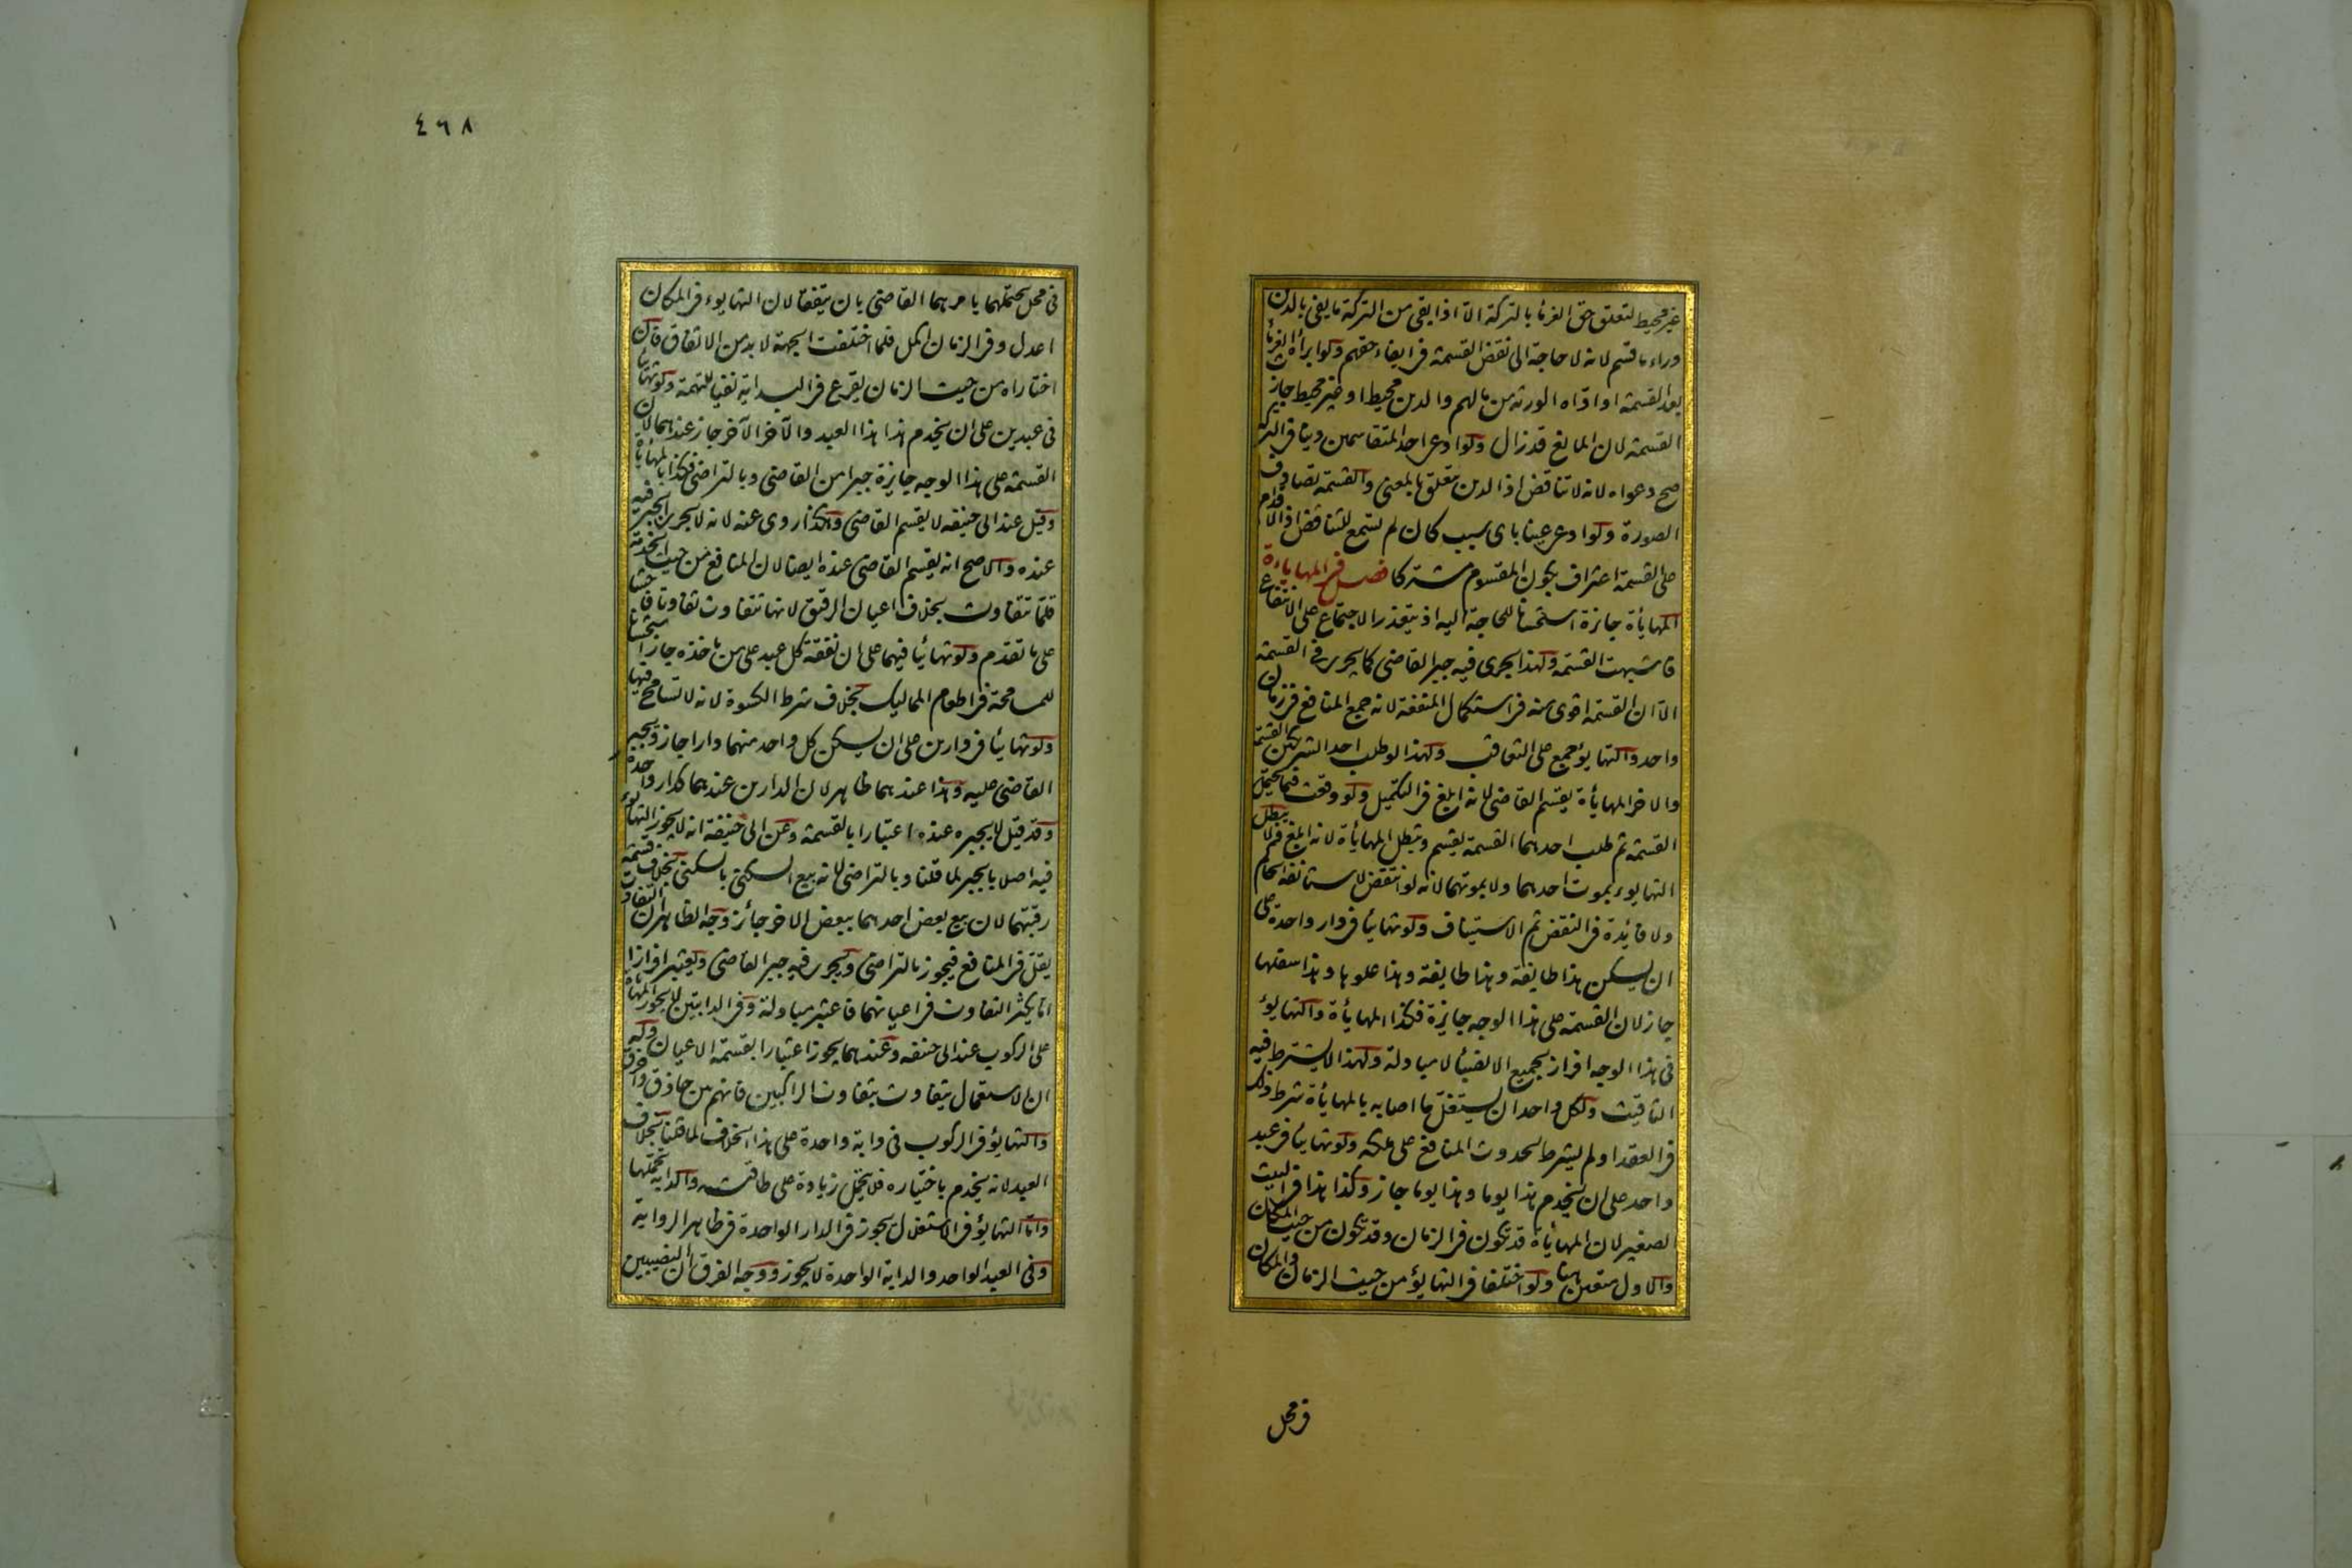 غير محيط لتعلق حق الغرماء بالتركة الا اذا بقى من التركة ما يفى بالدين
وراء ما قسم لانه لا حاجة الى نقض القسمة فى ايفاء حقهم ولو ابرأه الغرماء
بعد القسمة او اداه الورثة من مالهم والدين محيط او غير محيط جاز
القسمة لان المانع قد زال ولو ادعى احد المتقاسمين دينا فى التركة
صح دعواه لانه لا تناقض اذ الدين متعلق بالمعنى والقسمة تصادف
الصورة ولو ادعى عينا باى سبب كان لم تسمع للتناقض اذ الاقدام
على القسمة اعتراف بكون المقسوم مشتركا فصل فى المهاياءة
المهايأة جائزة استحسانا للحاجة اليه اذ يتعذر الاجتماع على الانتفاع
فاشبهت القسمة ولهذا يجرى فيه جبر القاضى كما يجرى فى القسمة
الا ان القسمة اقوى منه فى استكمال المنفعة لانه جمع المنافع فى زمان
واحد والتهايؤ جمع على التعاقب ولهذا لو طلب احد الشريكين القسمة
والاخر المهايأة يقسم القاضى لانه ابلغ فى التكميل ولو وقعت فيما يحتمل
القسمة ثم طلب احدهما القسمة يقسم وتبطل المهايأة لانه ابلغ ولا يبطل
التهايوء بموت احدهما ولا بموتهما لانه لو انتقض لاستأنفه الحاكم
ولا فائدة فى النقض ثم الاستيناف ولو تهايئا فى دار واحدة على
ان يسكن هذا طايفة وهذا طايفة وهذا علوها وهذا سفلها
جاز لان القسمة على هذا الوجه جايزة فكذا المهايأة والتهايؤ
فى هذا الوجه افراز بجميع الانصباء لا مبادلة ولهذا لا يشترط فيه
التاقيت ولكل واحد ان يستغل ما اصابه بالمهايأة شرط ذلك
فى العقد او لم يشرط لحدوث المنافع على ملكه ولو تهايئا فى عبد
واحد على ان يخدم هذا يوما وهذا يوما جاز وكذا هذا فى البيت
الصغير لان المهايأة قد تكون فى الزمان وقد تكون من حيث المكان
والاول متعين هنا ولو اختلفا فى التهايؤ من حيث الزمان والمكان
فى محل
٤٦٨
فى محل يحتملهما يامرهما القاضى بان يتفقا لان التهايوء فى المكان
اعدل وفى الزمان اكمل فلما اختلفت الجهة لا بد من الاتفاق فان
اختاراه من حيث الزمان يقرع فى البداية نفيا للتهمة ولو تهايئا
فى عبدين على ان يخدم هذا هذا العبد والآخر الآخر جاز عندهما لان
القسمة على هذا الوجه جايزة جبرا من القاضى وبالتراضى فكذا المهايأة
وقيل عند ابى حنيفه لا يقسم القاضى وهكذا روى عنه لانه لا يجرى الجبر فيه
عنده والاصح انه يقسم القاضى عنده ايضا لان المنافع من حيث الخدمة
قلما تتفاوت بخلاف اعيان الرقيق لانها تتفاوت تفاوتا فاحشا
على ما تقدم ولو تهائيا فيهما على ان نفقة كل عبد على من ياخذه جاز استحسانا
للمسامحة فى اطعام المماليك بخلاف شرط الكسوة لانه لا تسامح فيها
ولو تهايئا فى دارين على ان يسكن كل واحد منهما دارا جاز ويجبر
القاضى عليه وهذا عندهما ظاهر لان الدارين عندهما كدار واحدة
وقد قيل لا يجبره عنده اعتبارا بالقسمة وعن ابى حنيفة انه لا يجوز التهايوء
فيه اصلا بالجبر لما قلنا وبالتراضى لانه بيع السكنى بالسكنى بخلاف قسمة
رقبتهما لان بيع بعض احدهما ببعض الاخر جائز وجه الظاهر ان التفاوت
يقل فى المنافع فيجوز بالتراضى ويجرى فيه جبر القاضى ويعتبر افرازا
اما يكثر التفاوت فى اعيانهما فاعتبر مبادلة وفى الدابتين لا يجوز المهايأة
على الركوب عند ابى حنيفه وعندهما يجوز اعتبارا بقسمة الاعيان وله
ان الاستعمال يتفاوت بتفاوت الراكبين فانهم بين حاذق واخرق
والتهايؤ فى الركوب فى دابة واحدة على هذا الخلاف لما قلنا بخلاف
العبد لانه يخدم باختياره فلا يتحمل زيادة على طاقته والدابة تحملها
واما التهايؤ فى الاستغلال يجوز فى الدار الواحدة فى ظاهر الرواية
وفى العبد الواحد والدابة الواحدة لا يجوز ووجه الفرق ان النصيبين